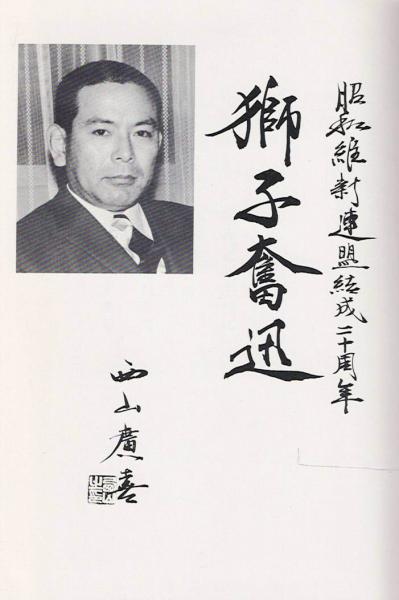 昭和維新連盟結成二十周年
獅子奮迅
西山廣喜